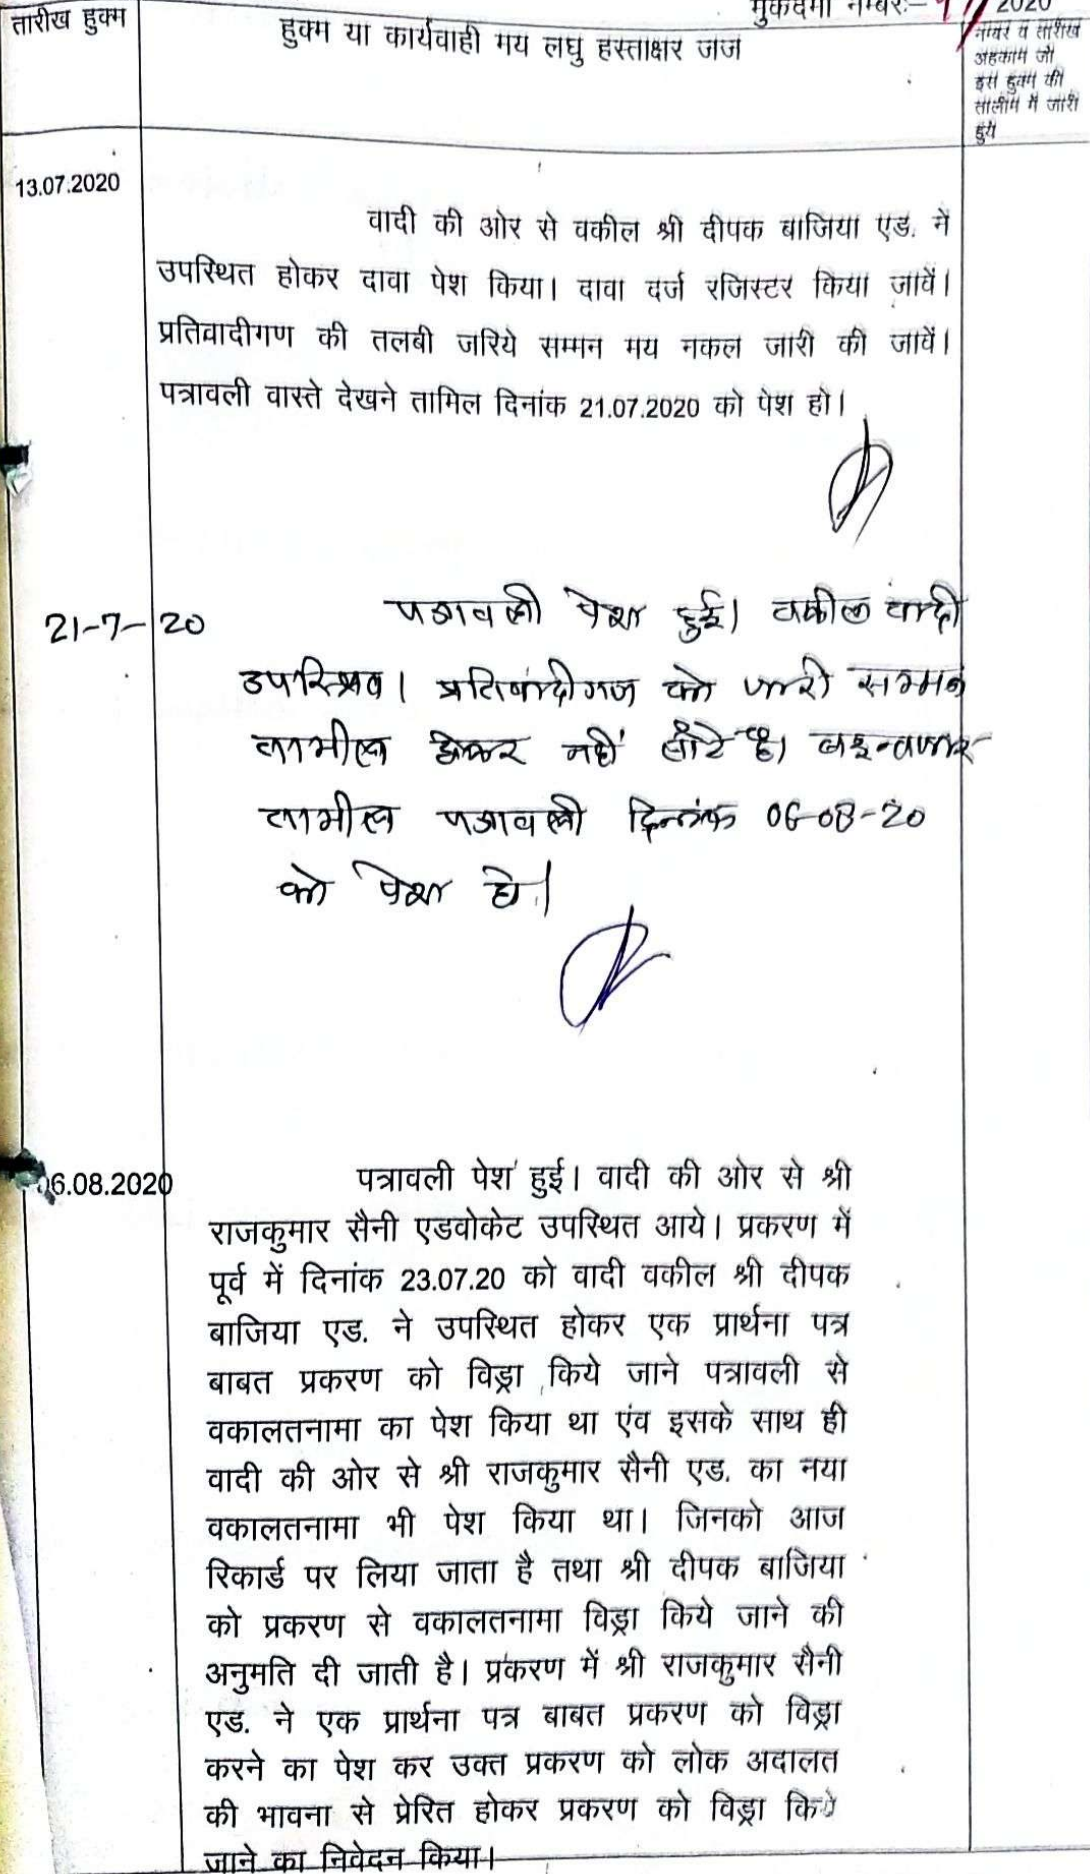 मुकदमा नम्बरः– 2020
तारीख हुक्म
हुक्म या कार्यवाही मय लघु हस्ताक्षर जज
नम्बर व तारीख
अहकाम जो
इस हुक्म की
तालीम में जारी
हुये
13.07.2020
वादी की ओर से वकील श्री दीपक बाजिया एड. ने
उपस्थित होकर दावा पेश किया। दावा दर्ज रजिस्टर किया जावें।
प्रतिवादीगण की तलबी जरिये सम्मन मय नकल जारी की जावें।
पत्रावली वास्ते देखने तामिल दिनांक 21.07.2020 को पेश हो।
21-7-20
पत्रावली पेश हुई। वकील वादी
उपस्थित। प्रतिवादीगण को जारी सम्मन
तामील होकर नहीं लौटे है।
तामील पत्रावली दिनांक 06-08-20
को पेश हो।
06.08.2020
पत्रावली पेश हुई। वादी की ओर से श्री
राजकुमार सैनी एडवोकेट उपस्थित आये। प्रकरण में
पूर्व में दिनांक 23.07.20 को वादी वकील श्री दीपक
बाजिया एड. ने उपस्थित होकर एक प्रार्थना पत्र
बाबत प्रकरण को विड्रा किये जाने पत्रावली से
वकालतनामा का पेश किया था एंव इसके साथ ही
वादी की ओर से श्री राजकुमार सैनी एड. का नया
वकालतनामा भी पेश किया था। जिनको आज
रिकार्ड पर लिया जाता है तथा श्री दीपक बाजिया
को प्रकरण से वकालतनामा विड्रा किये जाने की
अनुमति दी जाती है। प्रकरण में श्री राजकुमार सैनी
एड. ने एक प्रार्थना पत्र बाबत प्रकरण को विड्रा
करने का पेश कर उक्त प्रकरण को लोक अदालत
की भावना से प्रेरित होकर प्रकरण को विड्रा किये
जाने का निवेदन किया।